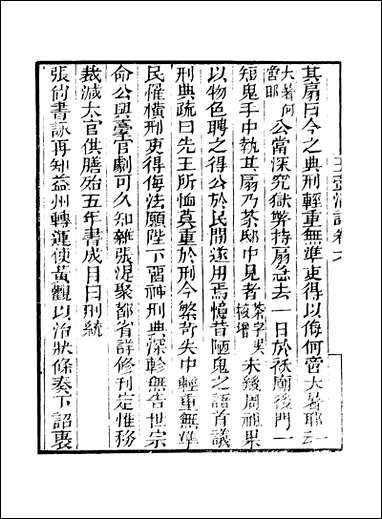 玉壺清話卷六
其扇曰今之典刑輕重無準吏得以侮何啻大暑耶公
大著何啻耶公當深究獄弊持扇急去一日於祅廟後門一
短鬼手中執其扇乃茶邸中見者茶字吳校增未幾周祖果
以物色聘之得公於民間遂用焉憶昔陋鬼之語首議
刑典疏曰先王所恤莫重於刑今繁苛失中輕重無準
民罹橫刑吏得侮法願陛下留神刑典深軫無告世宗
命公與臺官劇可久知雜張湜聚都省詳修刊定惟務
裁減太官供膳殆五年書成目曰刑統
張尙書詠再知益州轉運使黃觀以治狀條奏下詔褒